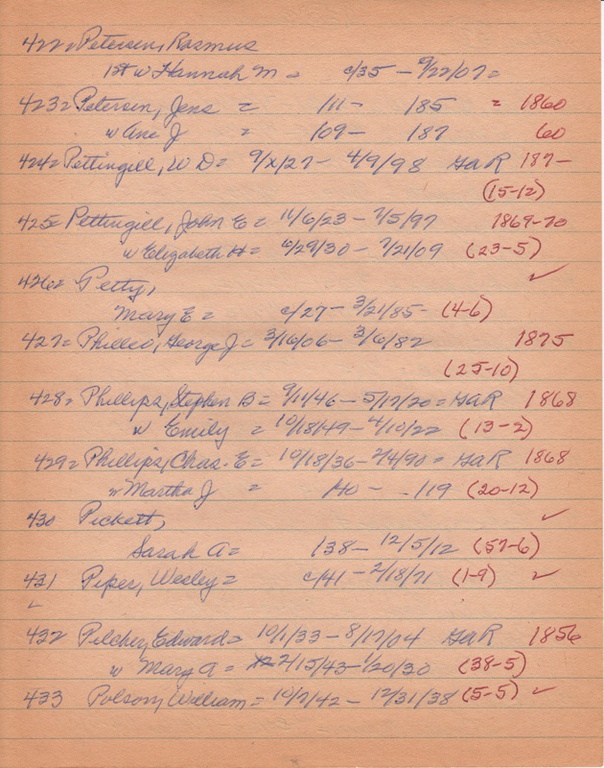 422= Petersen, Rasmus
1st w Hannah M = c/35 - 9/22/07=
423= Petersen, Jens = 111- 185 = 1860
w Ane J = 109- 187 60
424= Pettingill, W D= 9/x/27- 4/9/98 GaR 187-
(15-12)
425= Pettingill, John E = 11/6/23 - 7/5/97 1869-70
w Elizabeth H= 6/29/30 - 7/21/09 (23-5)
426= Petty, ✓
Mary E = c/27- 3/21/85- (4-6)
427= Philleo, George J= 3/16/06- 3/6/82 1875
(25-10)
428= Phillips, Stephen B= 9/11/46-5/17/20= GaR 1868
w Emily = 10/18/49-4/10/22 (13-2)
429= Phillips, Chas. E= 10/18/36-2/4/90= GaR 1868
w Martha J = 140 - 119 (20-12)
430 Pickett, ✓
Sarah A= 138- 12/5/12 (57-6)
431 Piper, Wesley= c/41-2/18/71 (1-9) ✓
✓
432 Pilcher, Edward= 10/1/33-8/17/04 GaR 1856
w Mary A = 2/15/43-1/20/30 (38-5)
433 Polson, William=10/2/42 - 12/31/38 (5-5) ✓